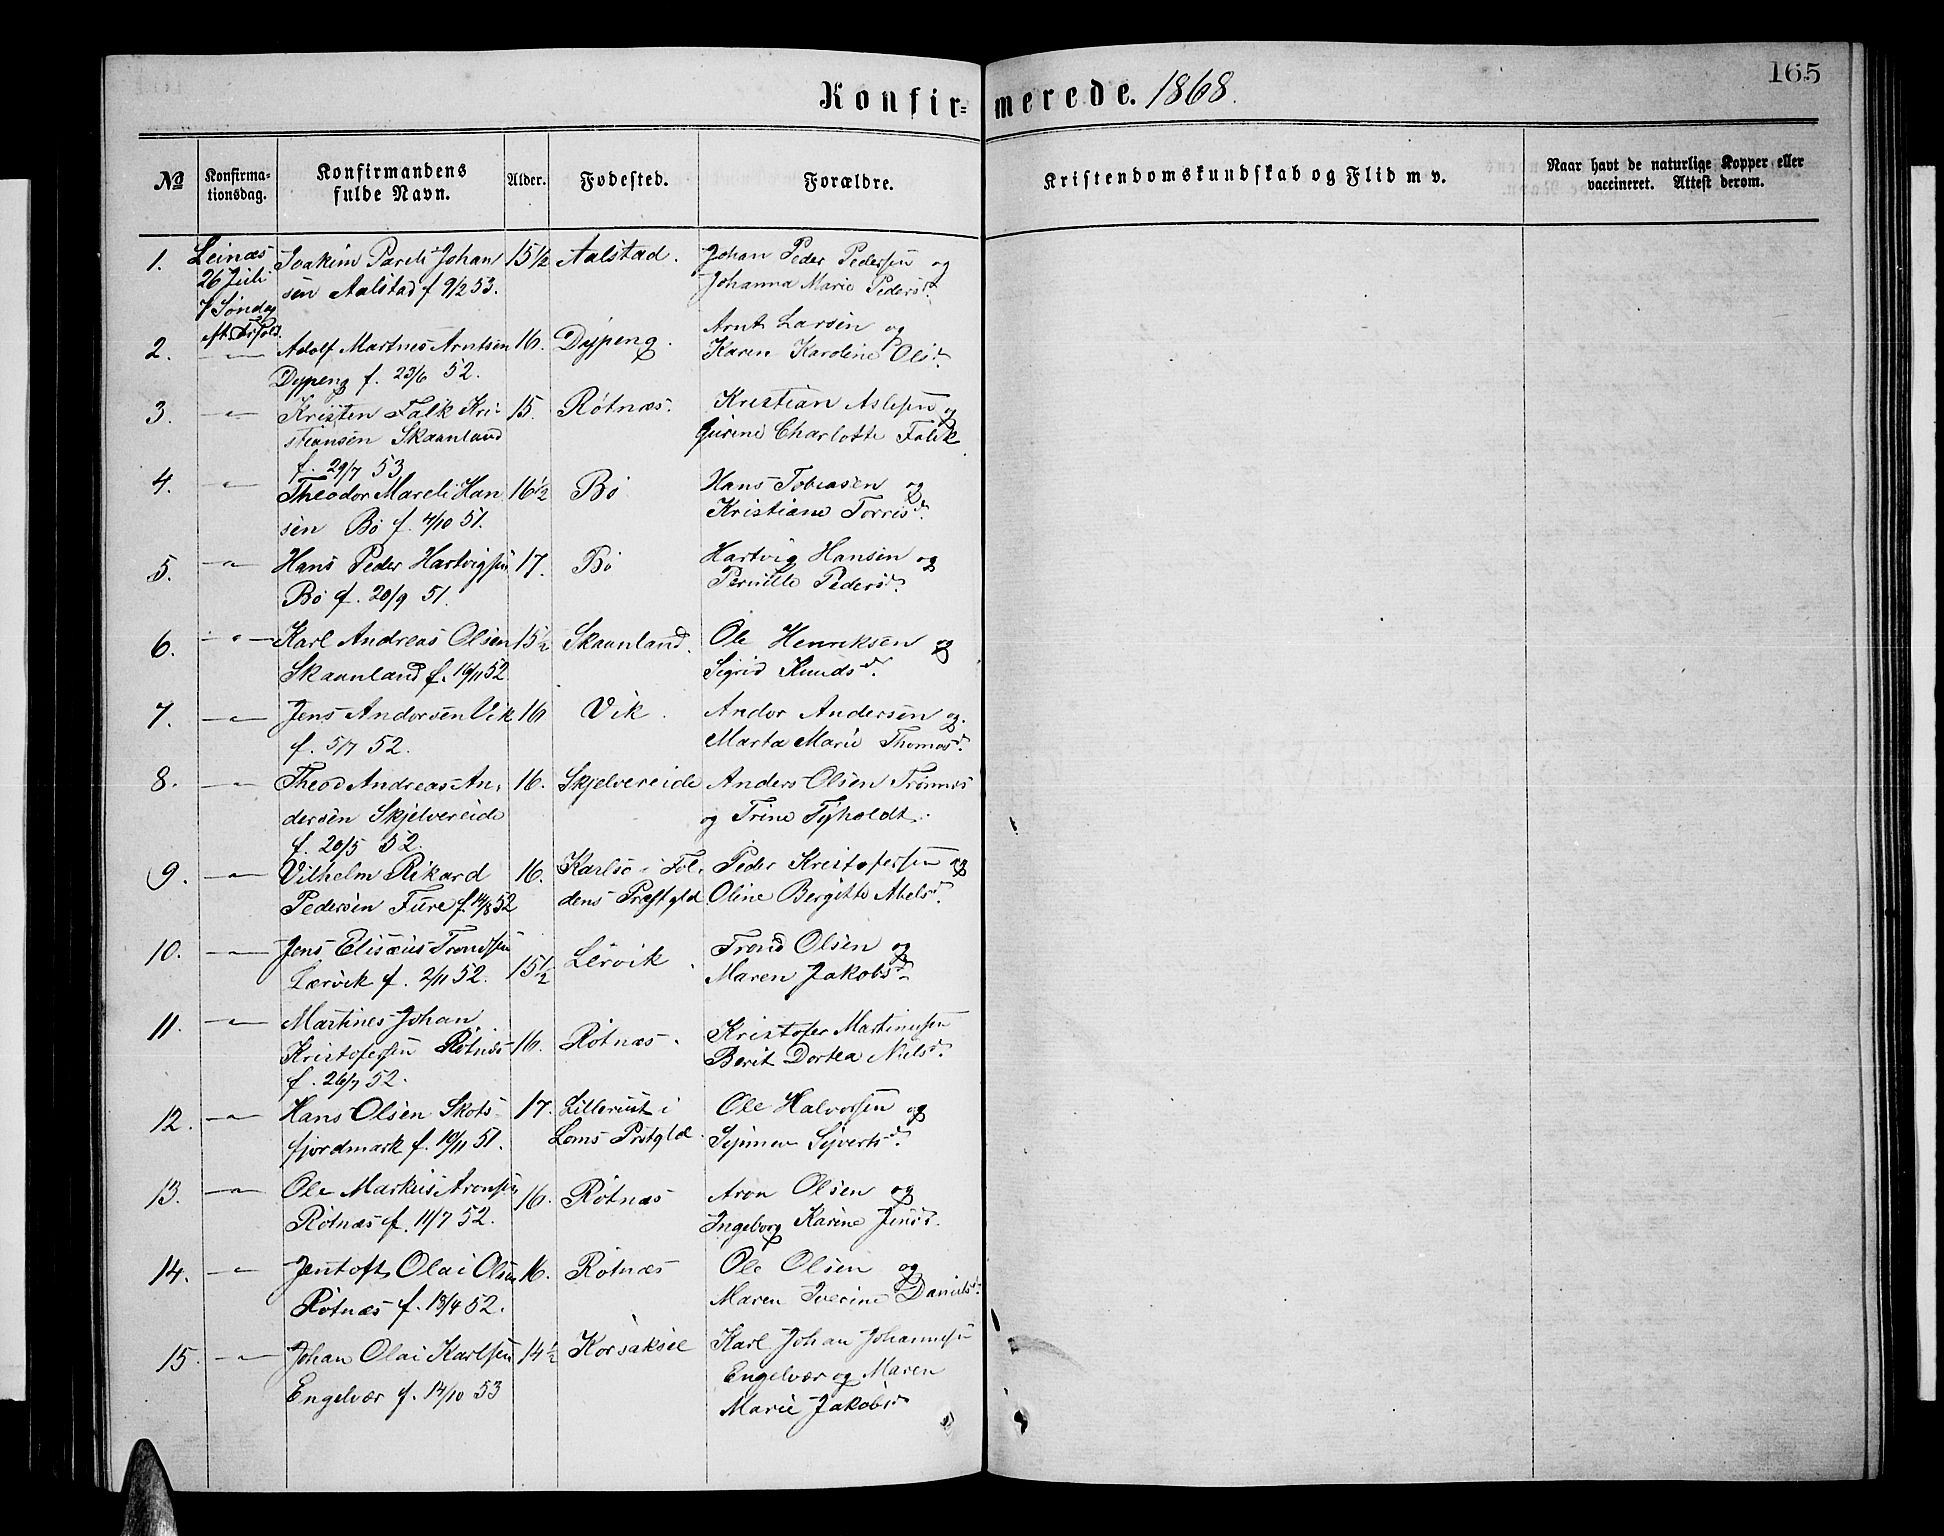 165
Konfir= merede. 1868.
No
Konfirma-
tionsdag.
Konfirmandens
fulde Navn.
Alder.
Fødested.
Forældre.
Kristendomskundskab og Flid m v.
Naar havt de naturlige Kopper eller
vaccineret. Attest derom.
Leinæs
26 Juli
7 Søndag
1. Joakim Pareli Johan 15½ Aalstad. Johan Peder Pedersen og
sen Aalstad f 9/2 53. Johanna Marie Pedersd.
2. Adolf Martines Arntsen 16. Dypeng. Arnt Larsen og
Dypeng f. 23/6 52. Karen Karoline Olsd.
3. Kristen Falk Kri- 15. Røtnæs. Kristian Aslesen og
stiansen Skaanland Charlotte Falk
f. 29/7 53
4. Theodor Mareli Han 16½ Bø Hans Tobiasen og
sen Bø f. 4/10 51. Kristiane Torrisd.
5. Hans Peder Hartvigsen 17. Bø Hartvig Hansen og
Bø f. 20/9 51. Pernille Pedersd.
6. Karl Andreas Olsen 15½ Skaanland. Ole Henriksen og
Skaanland f. 16/11 52. Sigrid Knudsd.
7. Jens Andorsen Vik 16 Vik. Andor Andersen og
f. 5/7 52. Marta Marie Thomasd.
8. Theod Andreas An- 16. Skjelvereide Anders Olsen Trønnes
dersen Skjelvereide og Trine Tyholdt.
f. 20/5 52.
9. Vilhelm Rikard 16. Karlsø i Fol- Peder Kristofersen og
Pedersen Fure f. 14/8 52 dens Præstgld. Oline Bergitte Abelsd.
10. Jens Elisæus Trondsen 15½ Lervik. Trond Olsen og
Lærvik f. 2/11 52. Maren Jakobsd.
11. Martines Johan 16. Røtnæs. Kristofer Martinusen
Kristofersen Røtnæs Berit Dortea Nielsd.
f. 26/7 52.
12. Hans Olsen Skots- 17. i Ole Halvorsen og
fjordmark f. 19/11 51. Loms Prstgld. Synnev Syvertsd.
13. Ole Markus Aronsen 16. Røtnæs Aron Olsen og
Røtnæs f. 11/7 52. Ingeborg Karine Jensd.
14. Jentoft Olai Olsen 16. Røtnæs Ole Olsen og
Røtnæs f. 13/4 52. Maren Iverine Danielsd.
15. Johan Olai Karlsen 14½ Korsaksel Karl Johan Johannesen
Engelvær f. 14/10 53 Engelvær og Maren
Marie Jakobsd